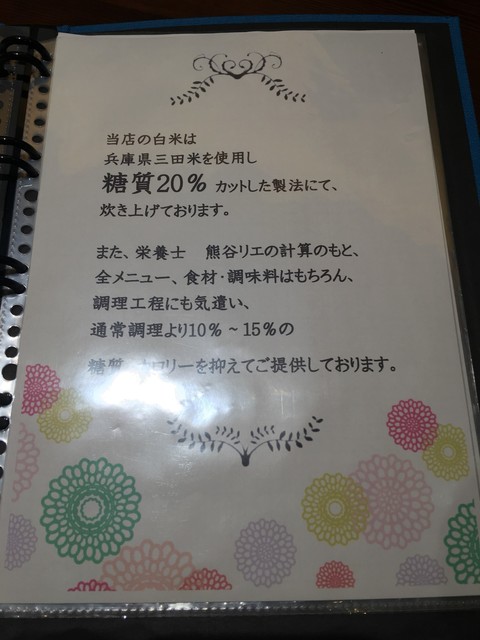 当店の白米は
兵庫県三田米を使用し
糖質20% カットした製法にて、
炊き上げております。
また、栄養士 熊谷リエの計算のもと、
全メニュー、食材・調味料はもちろん、
調理工程にも気遣い、
通常調理より10%~15%の
糖質・カロリーを抑えてご提供しております。